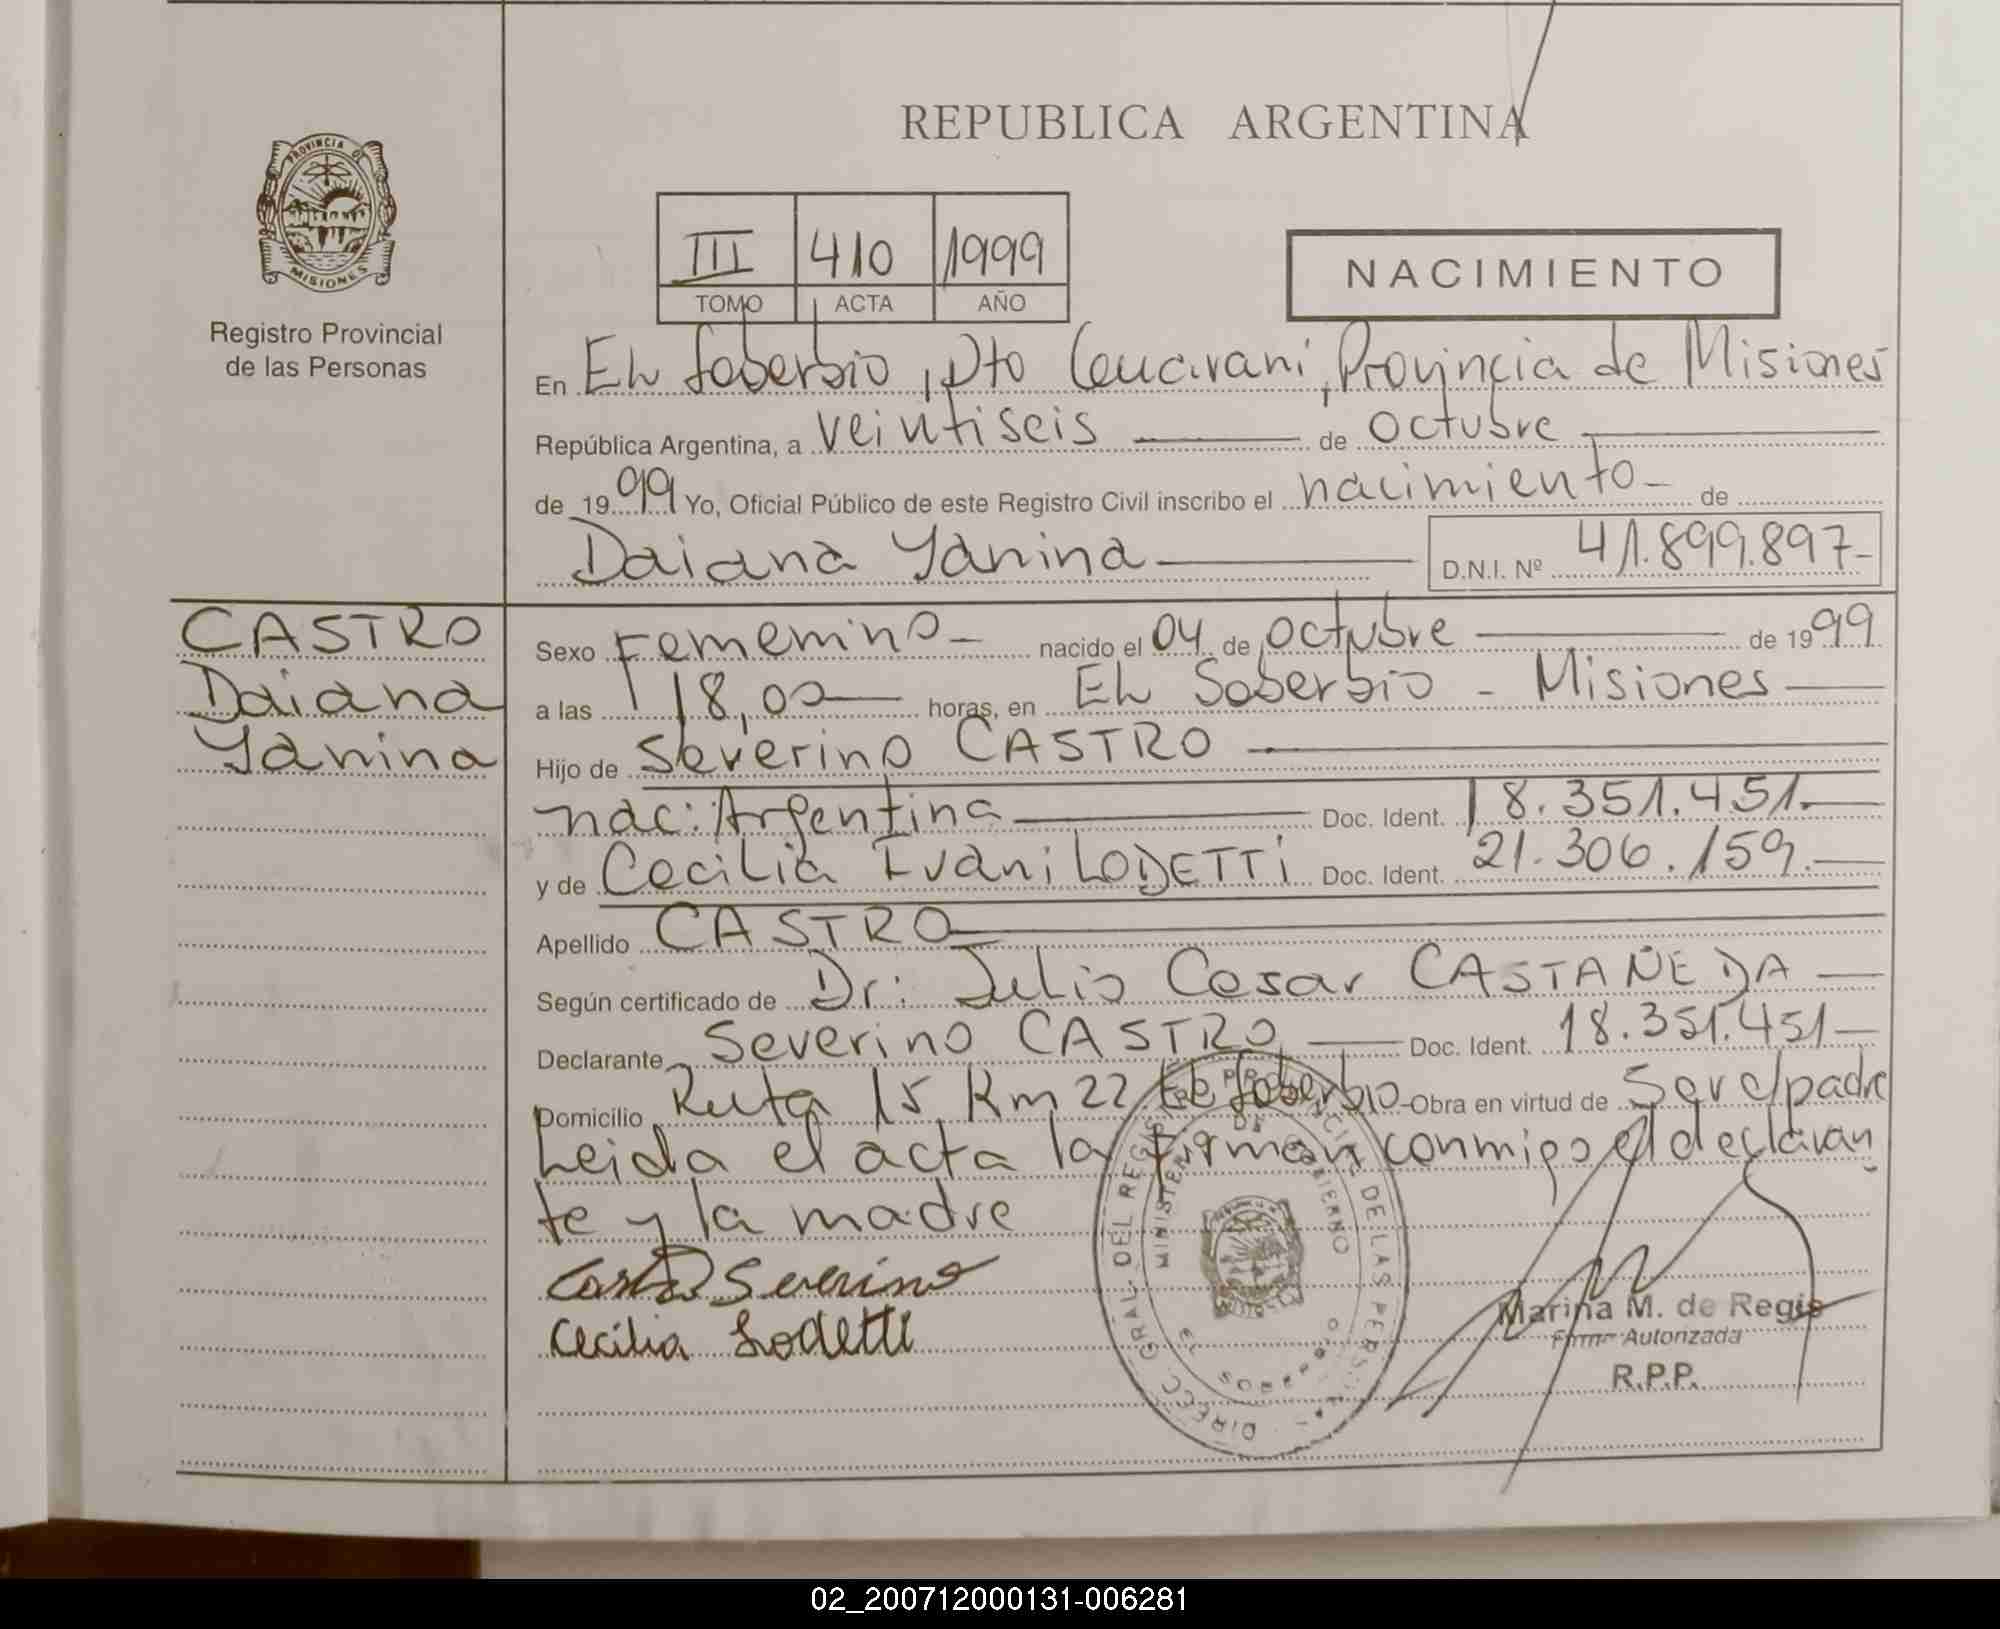 REPUBLICA ARGENTINA
PROVINCIA DE
MISIONES
Registro Provincial
de las Personas
III 410 1999
TOMO ACTA AÑO
NACIMIENTO
En El Soberbio, Dto Guarani, Provincia de Misiones
República Argentina, a veintiseis de octubre
de 1999 Yo, Oficial Público de este Registro Civil inscribo el nacimiento de
Daiana Yanina D.N.I. Nº 41.899.897
CASTRO
Daiana
Yanina
Sexo Femenino nacido el 04 de octubre de 1999
a las 18,00 horas, en El Soberbio - Misiones
Hijo de Severino CASTRO
nac: Argentina Doc. Ident. 18.351.451.
y de Cecilia Ivani LODETTi Doc. Ident. 21.306.159.
Apellido CASTRO
Según certificado de Dr: Julio Cesar CASTAÑEDA
Declarante Severino CASTRO Doc. Ident. 18.351.451
Domicilio Ruta 15 Km 22 El Soberbio Obra en virtud de Ser el padre
Leida el acta la firman conmigo el declaran
te y la madre
Castro Severino
Cecilia Lodetti
DIRECC. GRAL. DEL REGISTRO PROVINCIAL DE LAS PERSONAS
MINISTERIO DE GOBIERNO
Marina M. de Regis
Firma Autorizada
R.P.P.
02_200712000131-006281